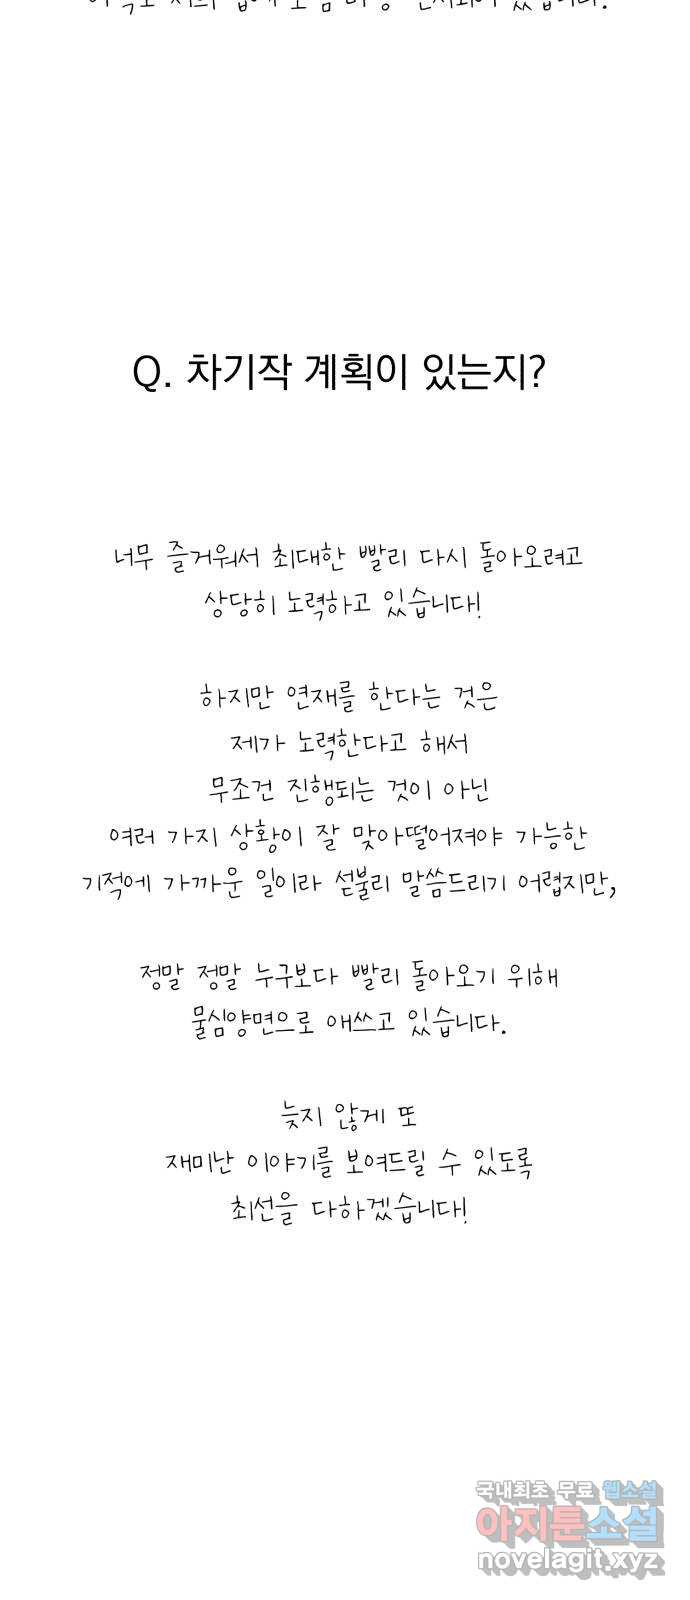 Q. 차기작 계획이 있는지?
너무 즐거워서 최대한 빨리 다시 돌아오려고
상당히 노력하고 있습니다!
하지만 연재를 한다는 것은
제가 노력한다고 해서
무조건 진행되는 것이 아닌
여러 가지 상황이 잘 맞아떨어져야 가능한
기적에 가까운 일이라 섣불리 말씀드리기 어렵지만,
정말 정말 누구보다 빨리 돌아오기 위해
물심양면으로 애쓰고 있습니다.
늦지 않게 또
재미난 이야기를 보여드릴 수 있도록
최선을 다하겠습니다!
국내최초 무료 웹소설
아지툰소설
novelagit.xyz